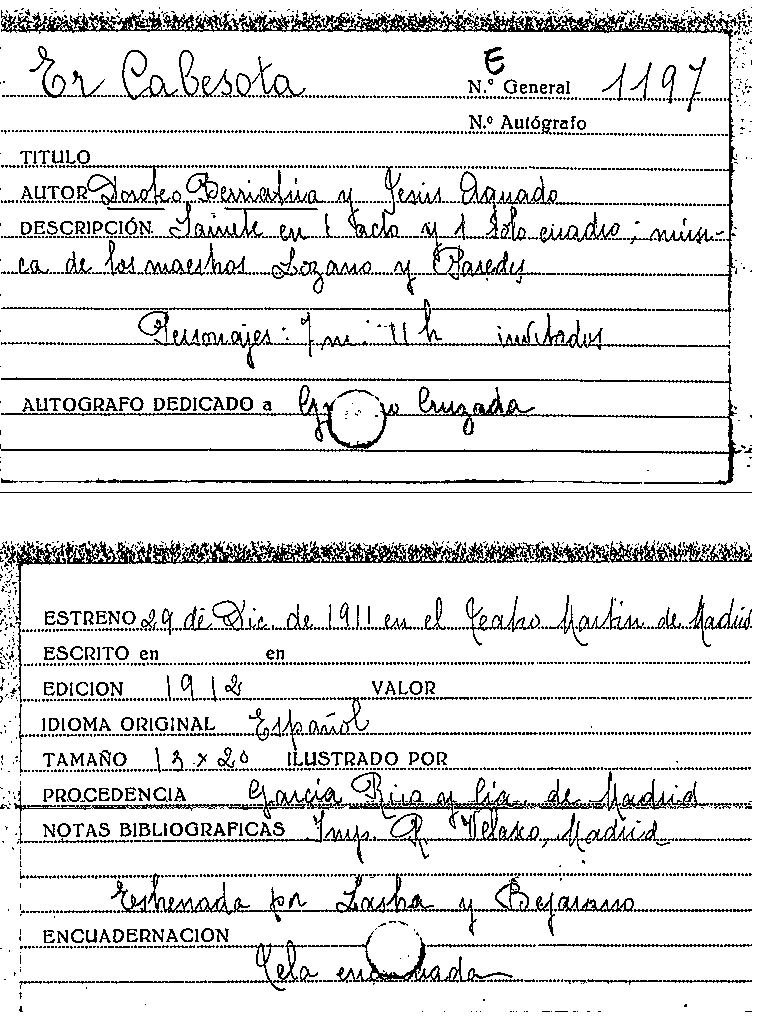 Er Cabesota
E
N.º General 1197
N.º Autógrafo
TITULO
AUTOR Doroteo Berriatúa y Jesús Aguado
DESCRIPCIÓN Sainete en 1 acto y 1 solo cuadro; músi-
ca de los maestros Lozano y Paredes
Personajes: 7 m. 11 h invitados
AUTOGRAFO DEDICADO a Cruzada
ESTRENO 29 de Dic. de 1911 en el Teatro Martín de Madrid
ESCRITO en en
EDICION 1912 VALOR
IDIOMA ORIGINAL Español
TAMAÑO 13 x 20 ILUSTRADO POR
PROCEDENCIA García Rico y Cía. de Madrid
NOTAS BIBLIOGRAFICAS Imp. R Velasco, Madrid
Estrenada por Lasha y Bejarano
ENCUADERNACION
Tela